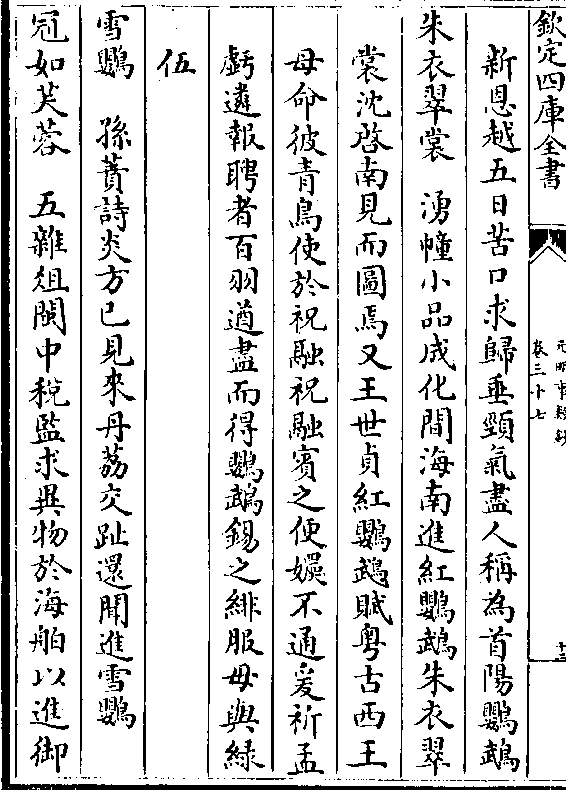 欽定四庫全書
元明事類鈔
卷三十七
十三
新恩越五日苦口求歸垂頸氣盡人稱為首陽鸚鵡
朱衣翠裳　湧幢小品成化間海南進紅鸚鵡朱衣翠
裳沈啓南見而圖焉又王世貞紅鸚鵡賦粤古西王
母命彼青鳥使於祝融祝融賓之使孃不通爰祈孟
虧遴報聘者百羽遒盡而得鸚鵡錫之緋服毋與緑
伍
雪鸚　孫蕡詩炎方已見來丹荔交趾還聞進雪鸚
冠如芙蓉　五雜俎閩中稅監求異物於海舶以進御